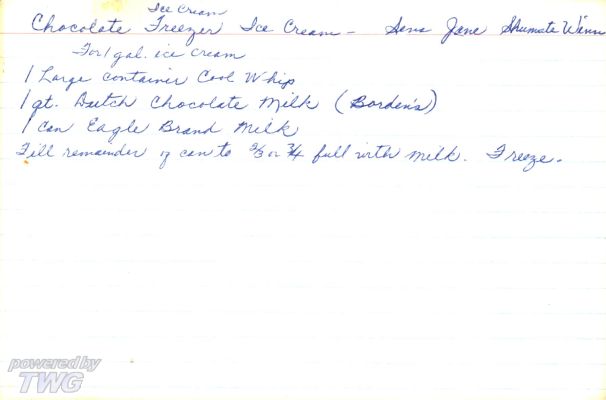 Ice Cream
Chocolate Freezer Ice Cream - Jane Shumate
For 1 gal. ice cream
1 Large container Cool Whip
1 qt. Dutch Chocolate Milk (Borden's)
1 can Eagle Brand Milk
Fill remainder of can to 2/3 or 3/4 full with milk. Freeze.
powered by
TWG